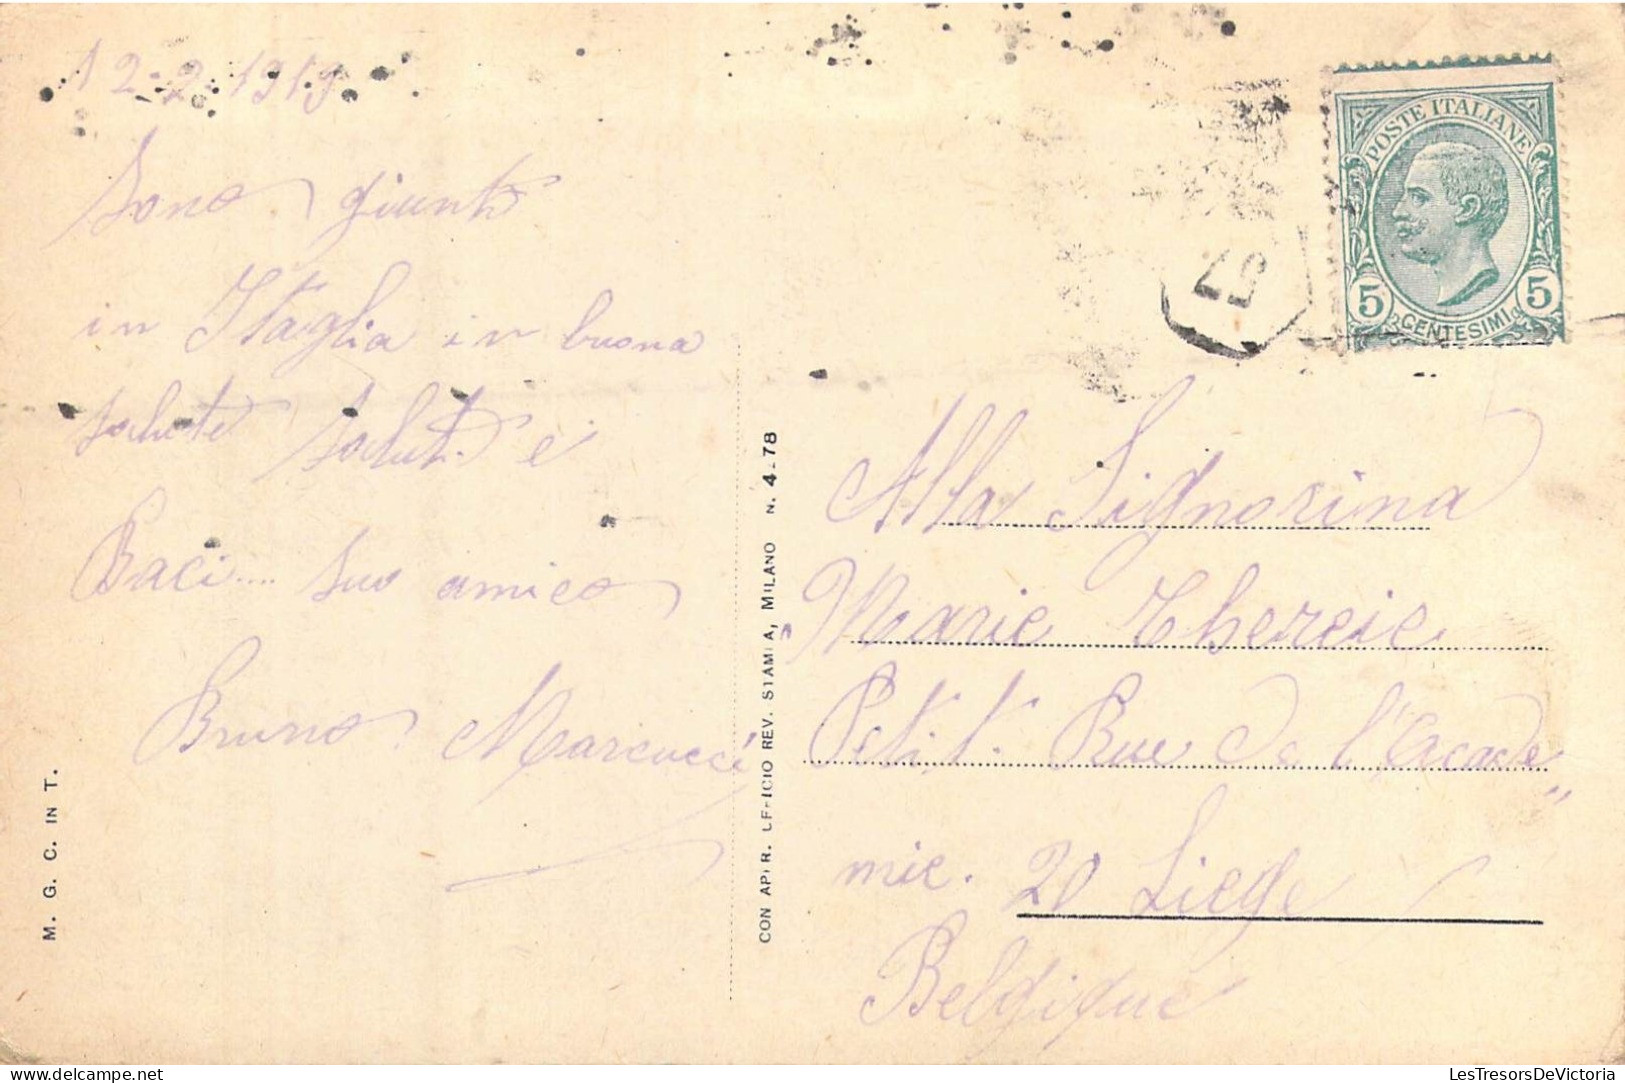 12-2-1919
Sono giunto
in Itaglia in buona
salute saluti e
Baci.... suo amico
Bruno Marcucci
M. G. C. IN T.
CON APP. R. UFFICIO REV. STAMPA, MILANO N. 4-78
POSTE ITALIANE
5 CENTESIMI 5
Alla Signorina
Marie Thereie
Petit. Rue de l'Acade"
mie. 20 Liege
Belgique
LesTresorsDeVictoria